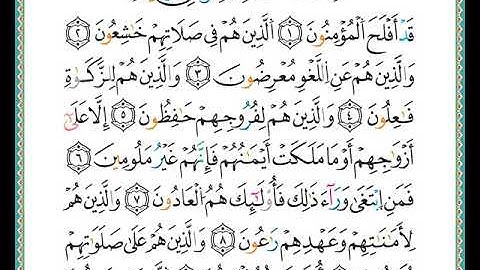 قَدْ أَفْلَحَ ٱلْمُؤْمِنُونَ ١ ٱلَّذِينَ هُمْ فِى صَلَاتِهِمْ خَٰشِعُونَ ٢
وَٱلَّذِينَ هُمْ عَنِ ٱللَّغْوِ مُعْرِضُونَ ٣ وَٱلَّذِينَ هُمْ لِلزَّكَوٰةِ
فَٰعِلُونَ ٤ وَٱلَّذِينَ هُمْ لِفُرُوجِهِمْ حَٰفِظُونَ ٥ إِلَّا عَلَىٰٓ
أَزْوَٰجِهِمْ أَوْ مَا مَلَكَتْ أَيْمَٰنُهُمْ فَإِنَّهُمْ غَيْرُ مَلُومِينَ ٦
فَمَنِ ٱبْتَغَىٰ وَرَآءَ ذَٰلِكَ فَأُو۟لَٰٓئِكَ هُمُ ٱلْعَادُونَ ٧ وَٱلَّذِينَ هُمْ
لِأَمَٰنَٰتِهِمْ وَعَهْدِهِمْ رَٰعُونَ ٨ وَٱلَّذِينَ هُمْ عَلَىٰ صَلَوَٰتِهِمْ